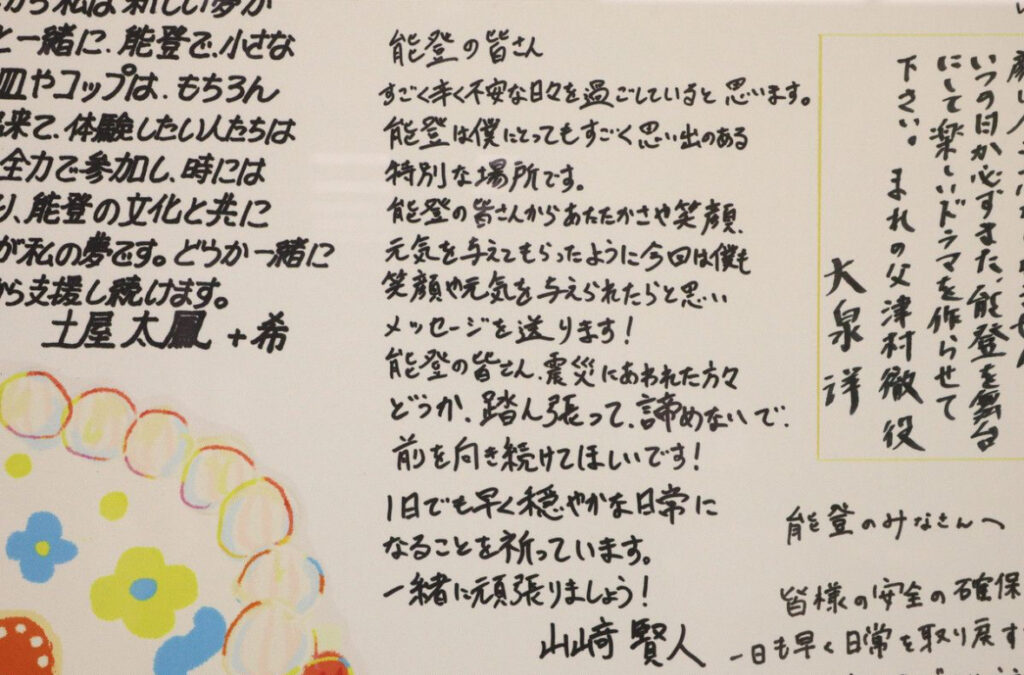 私は新しい夢が
と一緒に、能登で、小さな
皿やコップは、もちろん
来て、体験したい人たちは
全力で参加し、時には
り、能登の文化と共に
が私の夢です。どうか一緒に
から支援し続けます。
土屋太鳳+希
能登の皆さん
すごく辛く不安な日々を過ごしていると思います。
能登は僕にとってもすごく思い出のある
特別な場所です。
能登の皆さんからあたたかさや笑顔、
元気を与えてもらったように今回は僕も
笑顔や元気を与えられたらと思い
メッセージを送ります!
能登の皆さん、震災にあわれた方々
どうか、踏ん張って、諦めないで、
前を向き続けてほしいです!
1日でも早く穏やかな日常に
なることを祈っています。
一緒に頑張りましょう!
山﨑賢人
いつの日か必ずまた、能登を舞台
にして楽しいドラマを作らせて
下さい。まれの父津村徹役
大泉洋
能登のみなさんへ
皆様の安全の確保
一日も早く日常を取り戻す